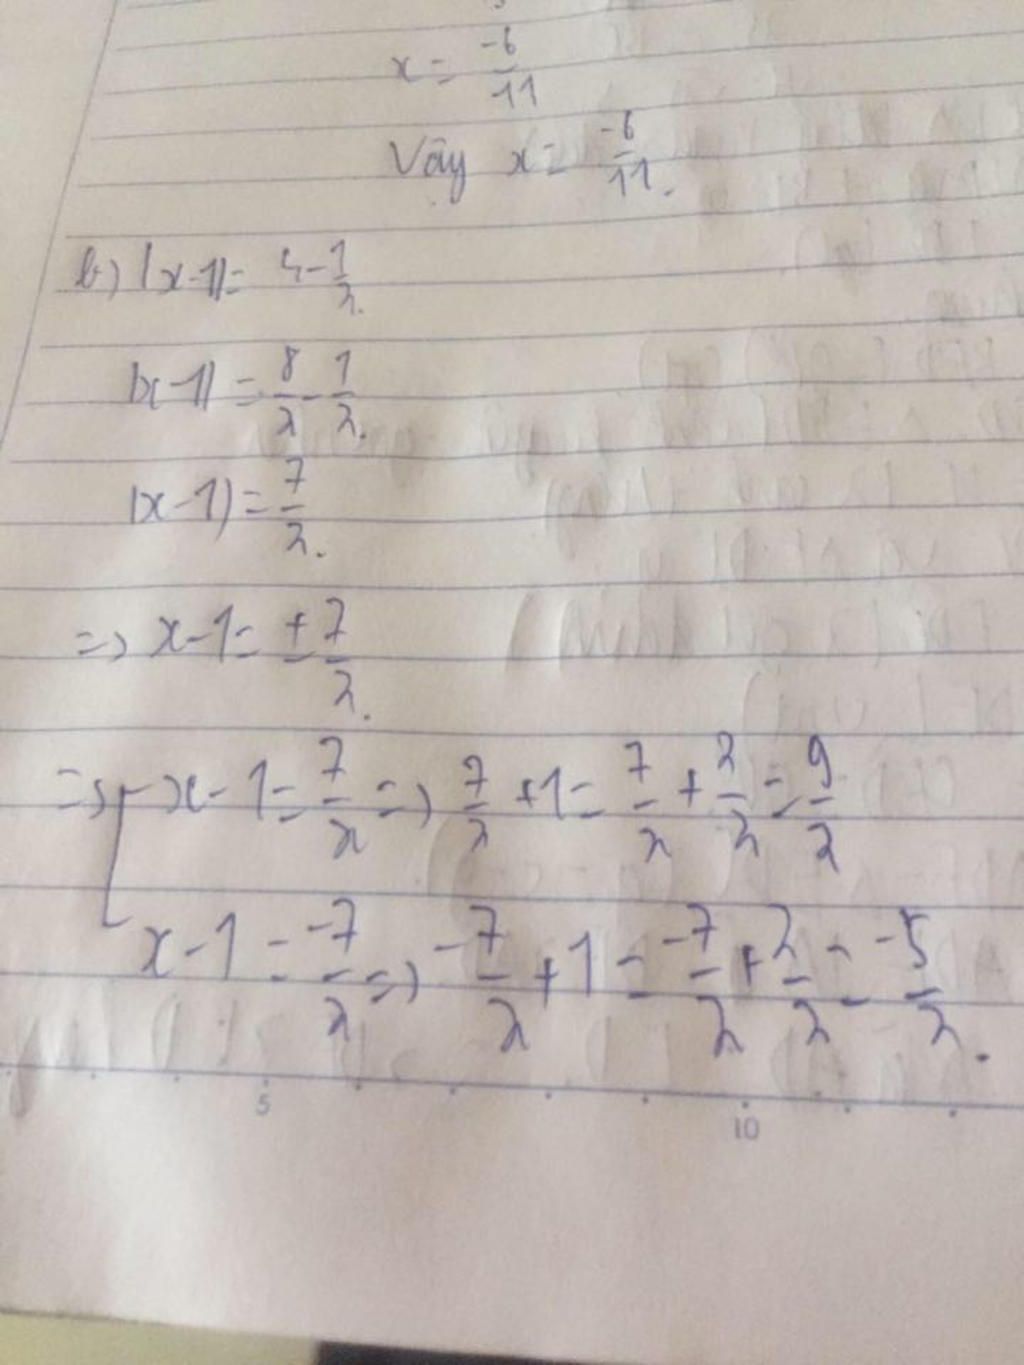 x = -6/11
Vậy x = -6/11.
b) |x-1| = 4 - 1/2.
|x-1| = 8/2 - 1/2.
|x-1) = 7/2.
=> x-1 = ± 7/2.
=> x-1 = 7/2 => 7/2 + 1 = 7/2 + 2/2 = 9/2
x-1 = -7/2 => -7/2 + 1 = -7/2 + 2/2 = -5/2.
5
10